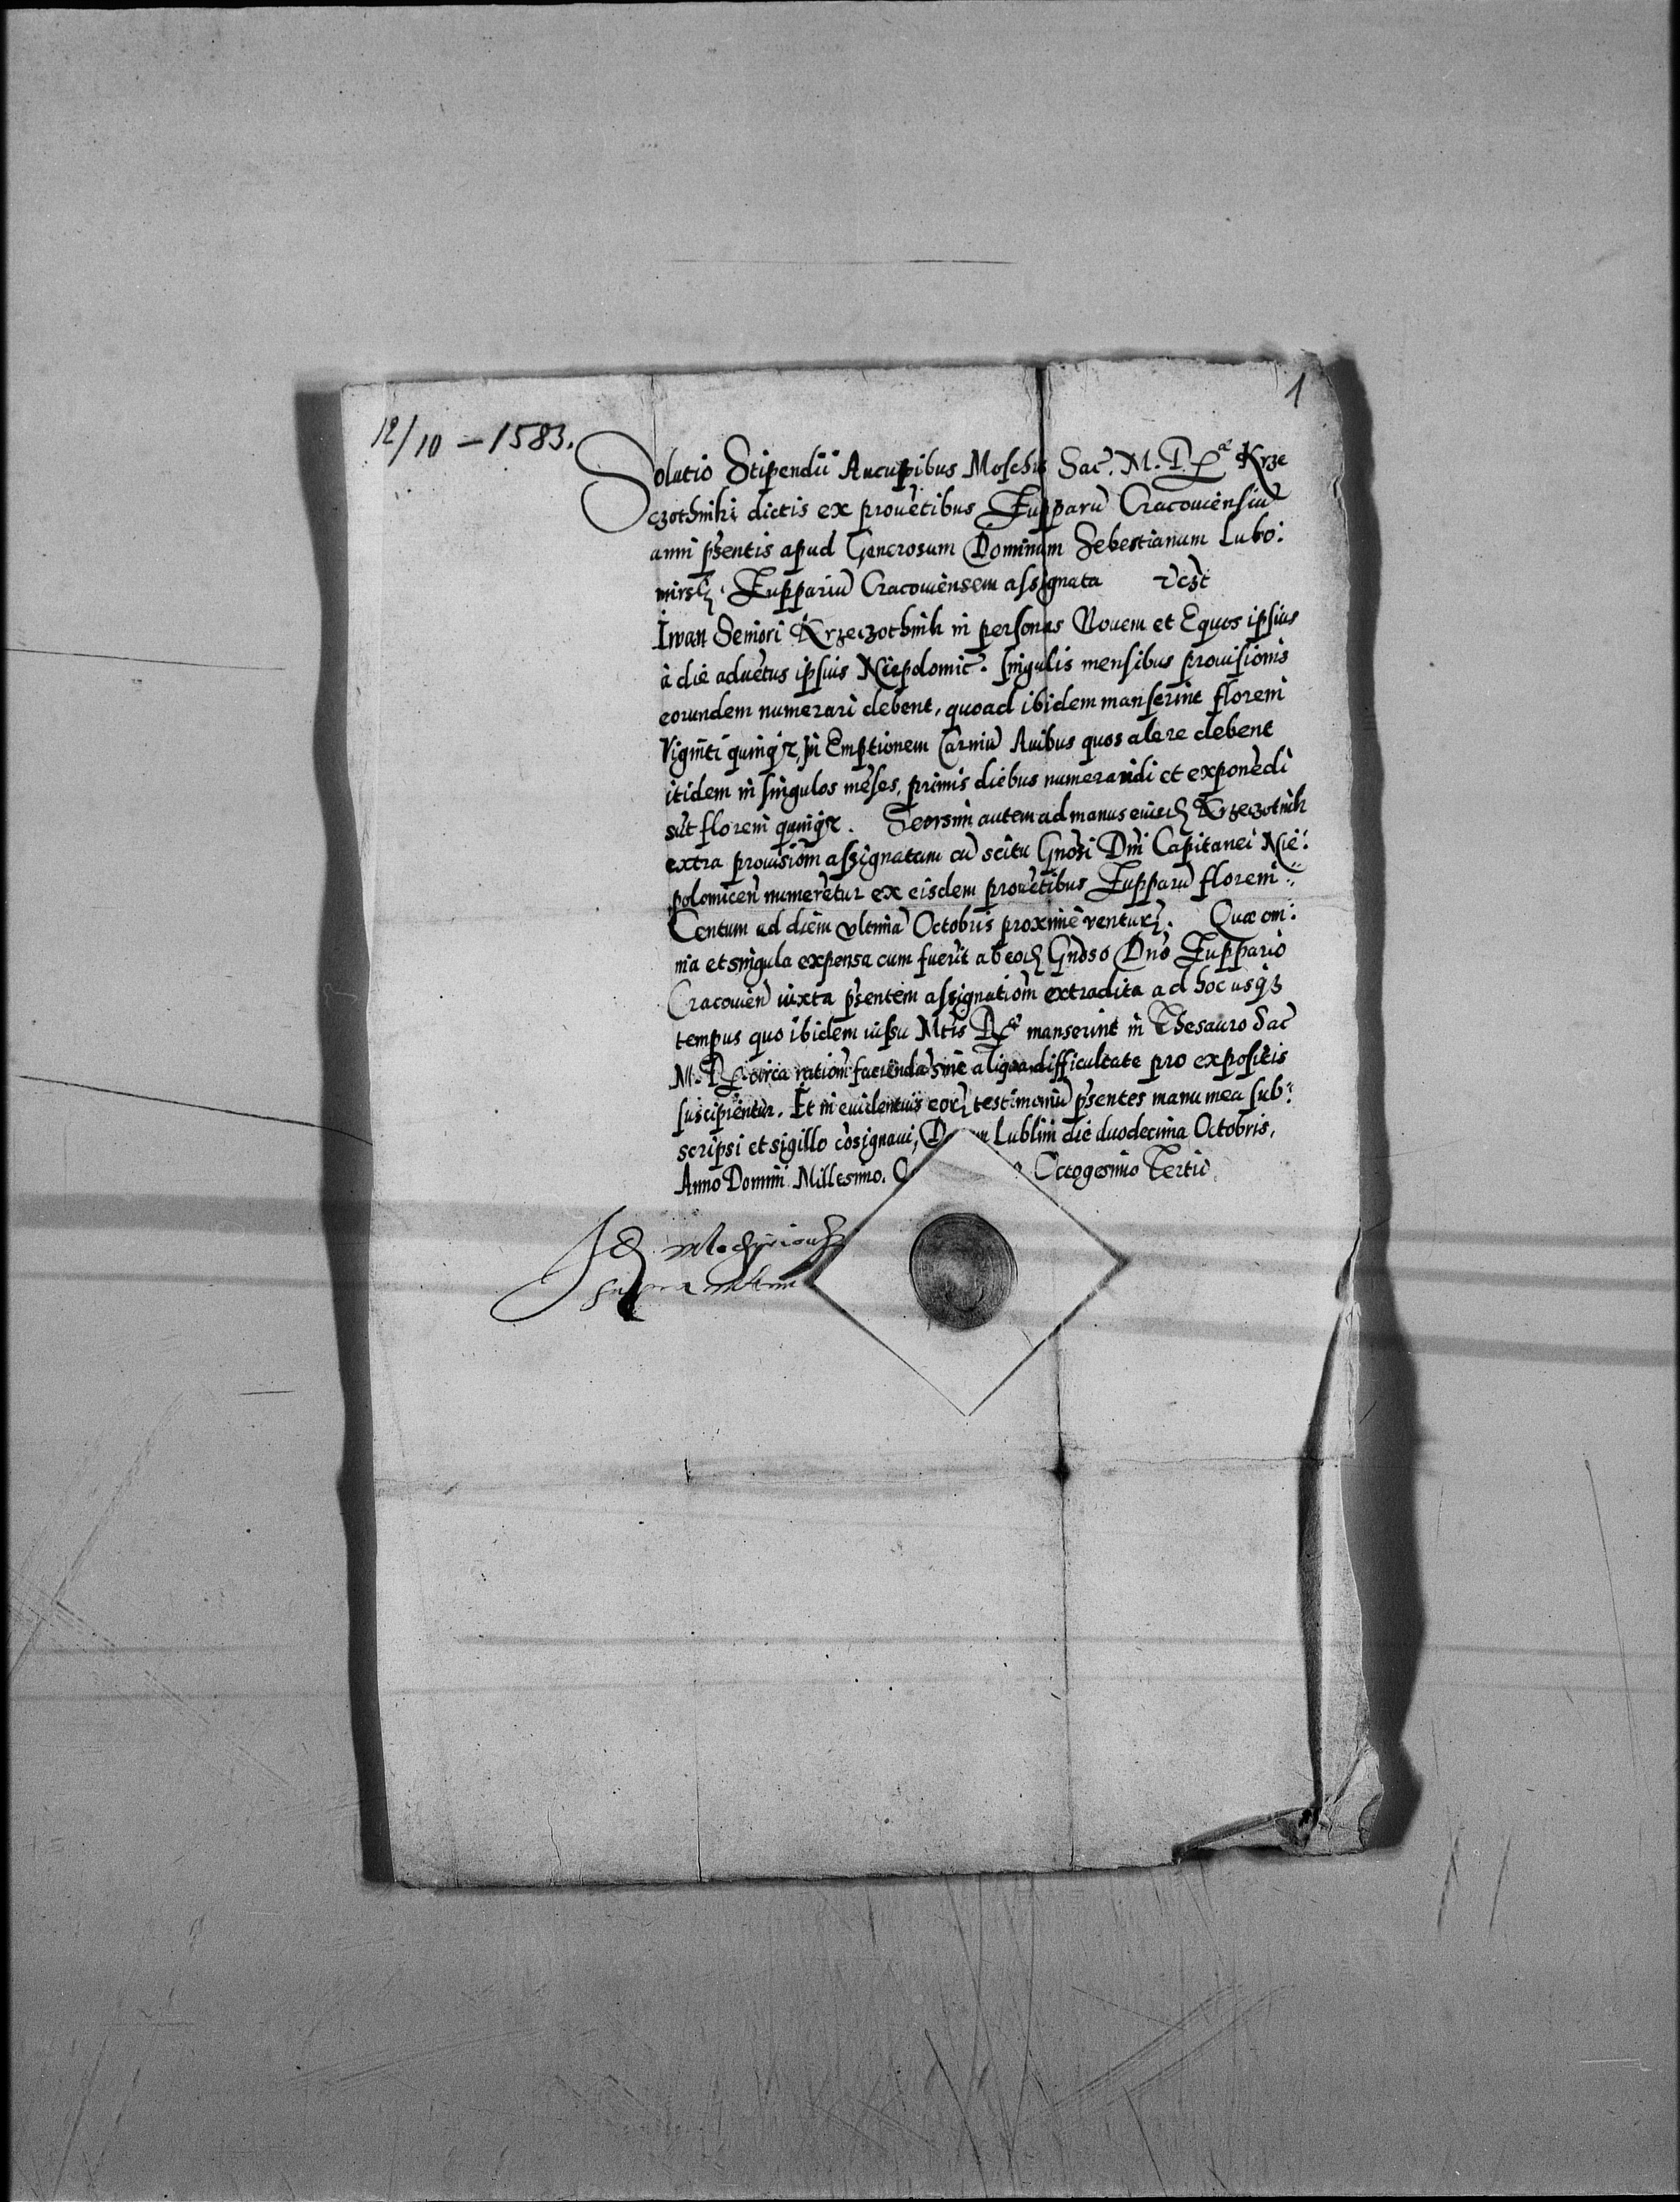 12/10 – 1583.
1
Solutio Stipendii Aucupibus Moschis Sac. M. R. Krze
czothniki dictis ex provẽtibus Zupparũ Cracoviensiũ
anni pr̃sentis apud Generosum Dominum Sebestianum Lubo:
mirsk. Zuppariũ Cracoviensem assignata
Iwan Seniori Krzeczothnik in personas Novem et Equos ipsius
à die advẽtus ipsius Niepolomic. singulis mensibus provisionis
eorundem numerari debent, quoad ibidem manserint floreni
Viginti quinq, In Emptionem Carniũ Avibus quos alere debent
itidem in singulos mẽses, primis diebus numerandi et exponẽdi
sũt floreni quinq. Seorsim autem ad manus eiusd Krzeczotnik
extra provisiom̃ assignatam cũ scitu Gnosi Dñi Capitanei Nie:
polomiceñ numerẽtur ex eisdem provẽtibus Zupparũ floreni
Centum ad diem ultimã Octobris proximè ventur. Quæ om:
nia et singula expensa cum fuerit ab eod Gnoso Dño Zuppario
Cracovieñ iuxta pr̃sentem assignatiom̃ extradita ad hoc usq
tempus quo ibidem iussu Mtis R manserint in Thesauro Sac
M. R. circa ratiom̃ faciendã sine aliqua difficultate pro expositis
suscipientur. Et in evidentius eor testimoniũ pr̃sentes manu mea sub:
scripsi et sigillo cõsignavi, Lublini die duodecima Octobris,
Anno Domini Millesimo. Octogesimo Tertio